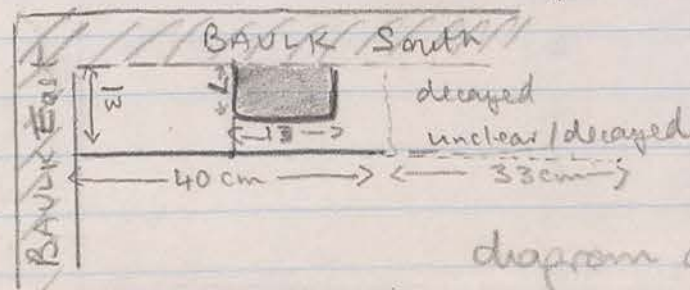 BAULK South
BAULK East
13
7
decayed
13
unclear/decayed
40 cm
33cm
diagram